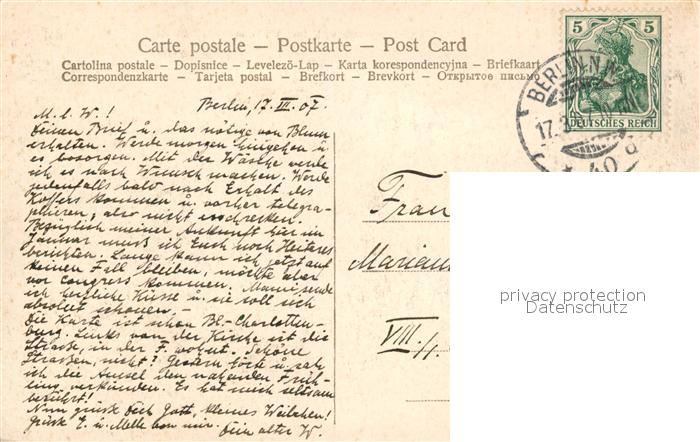 Carte postale – Postkarte – Post Card
Cartolina postale – Dopisnice – Levelező-Lap – Karta korespondencyjna – Briefkaart
Correspondenzkarte – Tarjeta postal – Brefkort – Brevkort – Открытое письмо
5 5
DEUTSCHES REICH
BERLIN N.W.
17.3
* 40 a
Berlin, 17. III. 07.
M. l. W.!
Deinen Brief u. das nötige von Blum
erhalten. Werde morgen hingehen u.
es besorgen. Mit der Wäsche werde
ich es nach Wunsch machen. Werde
jedenfalls bald nach Erhalt des
Koffers kommen u. vorher telegra-
phieren, also nicht erschrecken.
Bezüglich meiner Ankunft hier im
Januar muß ich Euch noch Heiteres
berichten. Lange kann ich jetzt auf
keinen Fall bleiben, möchte aber
vor Congress kommen. Mama sende
ich herzliche Küsse u. sie soll sich
absolut schonen. –
Die Karte ist schon Bl.-Charlotten-
burg. Links von der Kirche ist die
Straße, in der F. wohnt. Schöne
Straßen, nicht? Gestern hörte u. sah
ich die Amsel den nahenden Früh-
ling verkünden. Es hat mich seltsam
berührt!
Nun grüss Dich Gott, kleines Weibchen!
Grüsse E. u. Melle von mir. Dein alter W.
Frau
Mariann
VIII./1.
privacy protection
Datenschutz